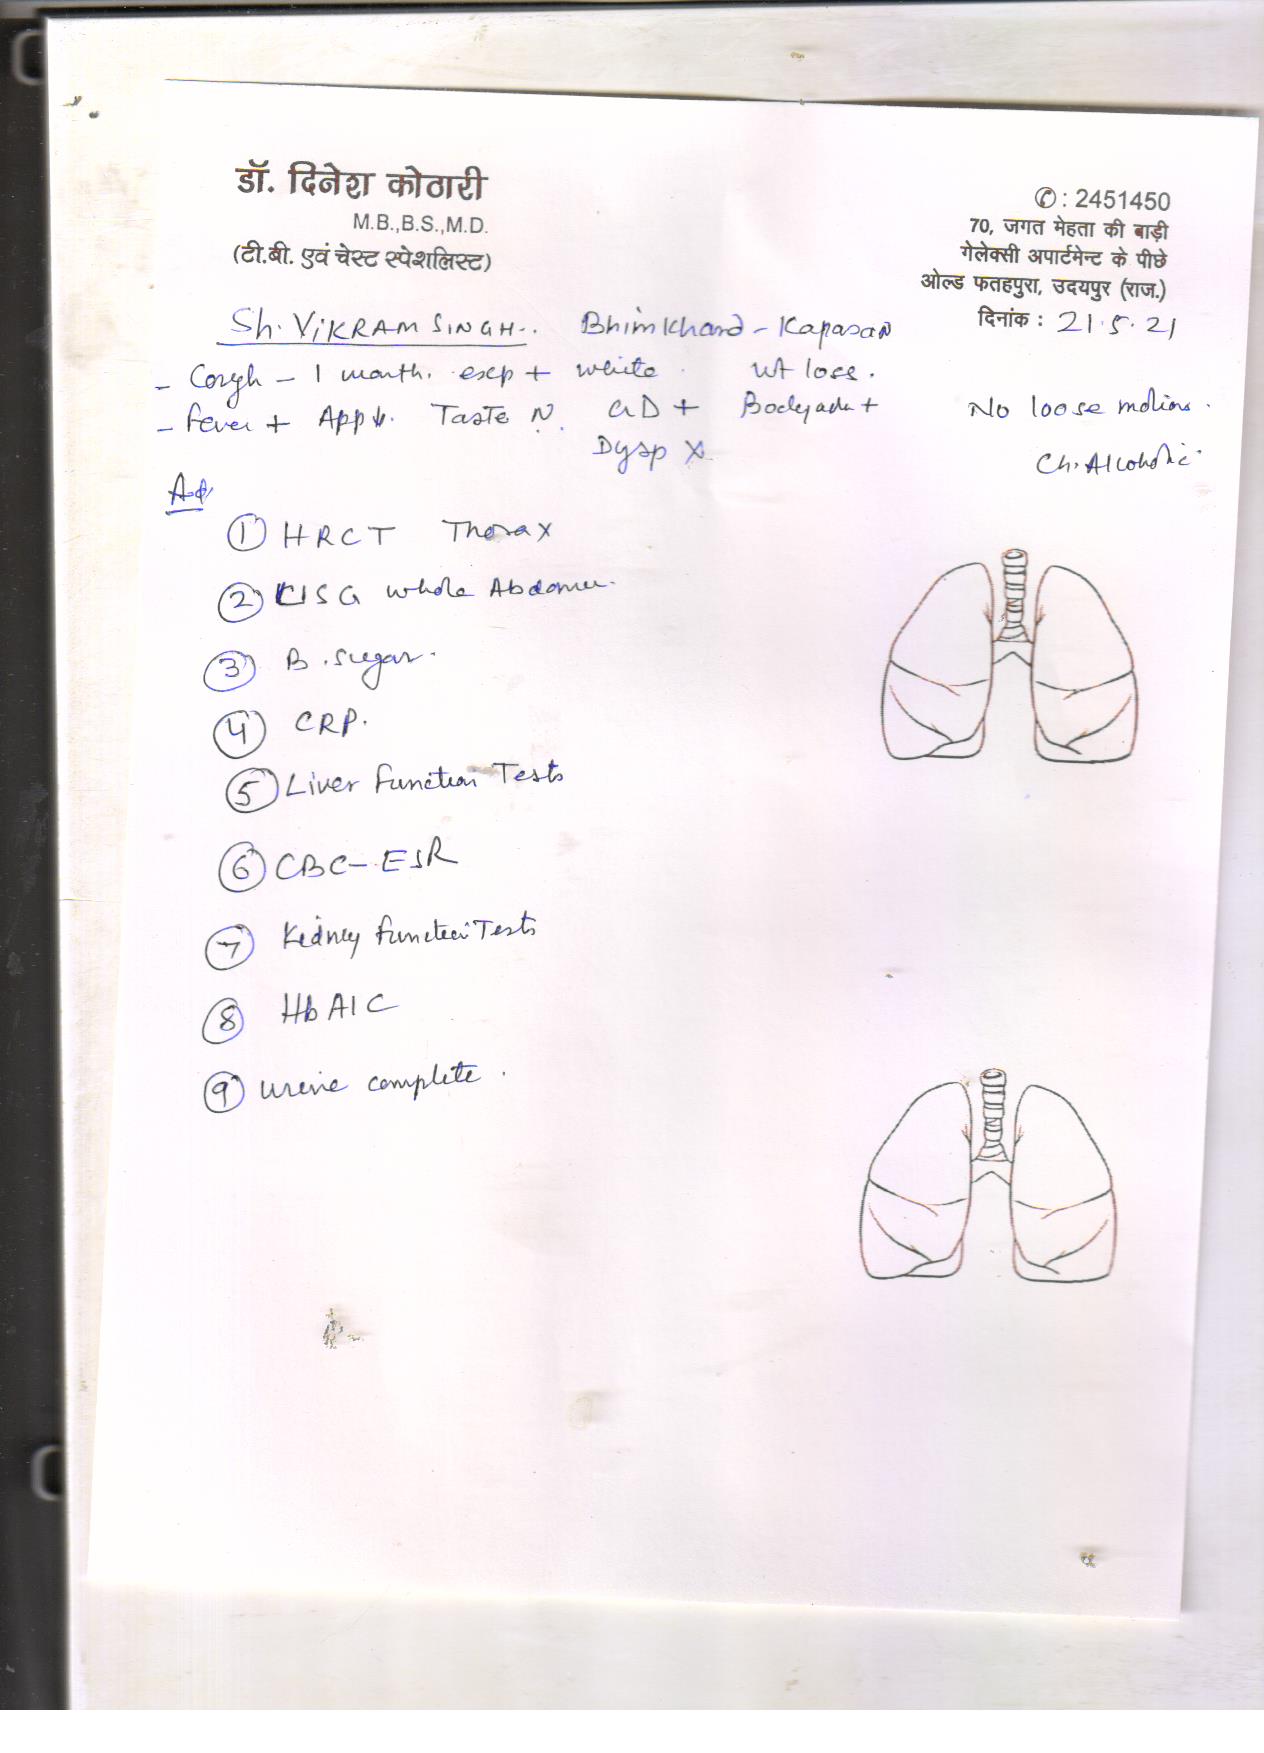 डॉ. दिनेश कोठारी
M.B.,B.S.,M.D.
(टी.बी. एवं चेस्ट स्पेशलिस्ट)
✆: 2451450
70, जगत मेहता की बाड़ी
गेलेक्सी अपार्टमेन्ट के पीछे
ओल्ड फतहपुरा, उदयपुर (राज.)
दिनांक : 21.5.21
Sh. VIKRAM SINGH. Bhimkhand - Kapasan
- Cough - 1 month. exp + white. wt loss.
- Fever + App ↓. Taste N. GD + Bodyache + No loose motions.
Dysp X Ch. Alcoholic
Ad
① HRCT Thorax
② USG whole Abdomen.
③ B. Sugar.
④ CRP.
⑤ Liver Function Tests
⑥ CBC - ESR
⑦ Kidney Function Tests
⑧ HbA1C
⑨ Urine complete.